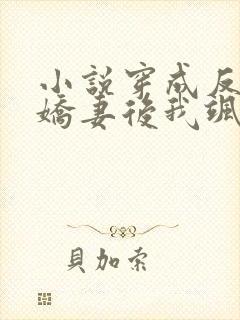 小說穿成反
嬌妻後我颯
貝加索